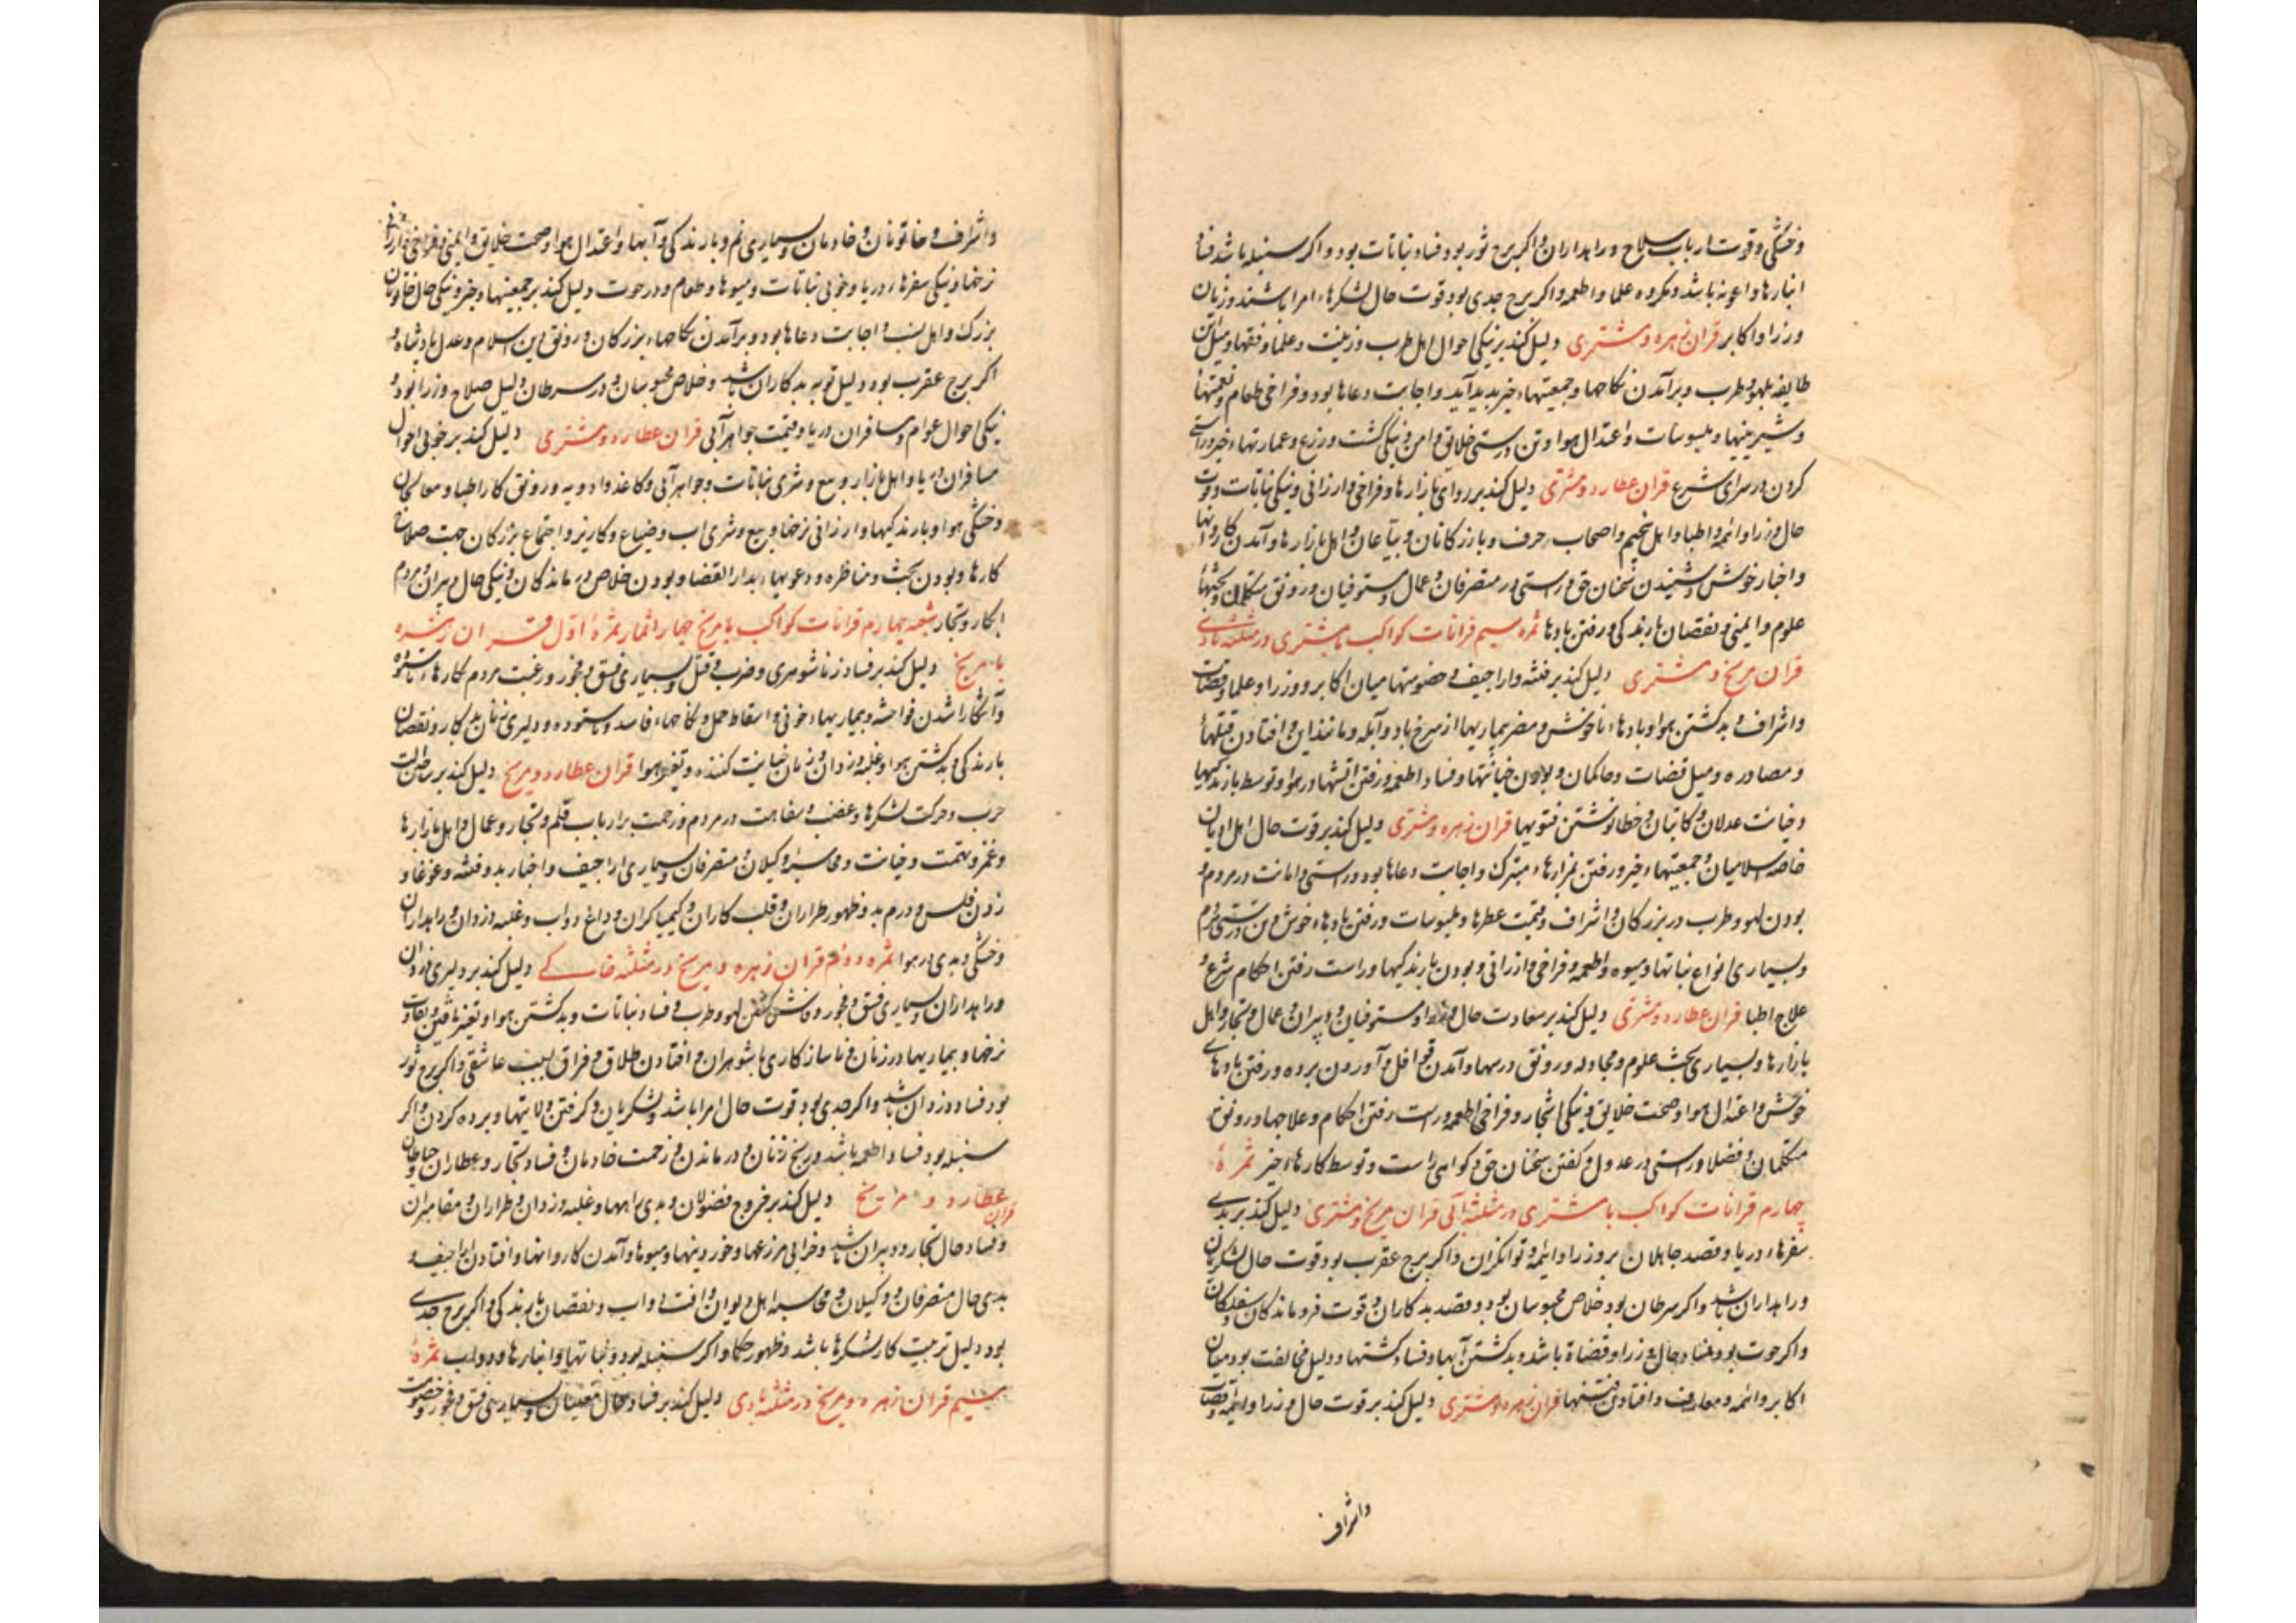 وخشکی وقوت ارباب سلاح و راهداران واکر برج ثور بود فساد نباتات بود و اکر سنبله باشد فساد
انبارها و اعونه باشد ومکروه علما واطعمه واکر برج جدی بود قوت حال لشکرها و امرا باشند و زیان
وزرا و اکابر قران زهره ومشتری دلیل کند بر نیکی احوال اهل طرب وزینت و علما و فقها ومیل این
طایفه بلهو وطرب وبرآمدن نکاحها وجمعیتهاء خیر پدید آید واجابت دعاها بود وفراخی طعام ونعمتها
وشیرینیها وملبوسات واعتدال هوا وتن درستی خلایق وامن ونیکی کشت وزرع وعمارتهاء خیر وراستی
کردن در سرای شرع قران عطارد ومشتری دلیل کند بر روائی بازارها وفراخی وارزانی ونیکی نباتات وقوت
حال وزرا وائمه واطبا واهل تنجیم واصحاب حرف وبازرکانان وبیّاعان واهل بازارها وآمدن کاروانها
واخبار خوش وشنیدن سخنان حق وراستی در متصرفان وعمال ومستوفیان ورونق متکلمان وبحثها
علوم وایمنی ونقصان بارندکی ورفتن بادها ثمره سیم قرانات کواکب با مشتری در مثلثه بادی
قران مریخ ومشتری دلیل کند بر فتنه واراجیف وخصومتها میان اکابر ووزرا وعلما وقضات
واشراف وبد کشتن هوا وبادهاء ناخوش ومضر بیماریها از سرخ باد وآبله ومانند این وافتادن قتلها
ومصادره ومیل قضات وحاکمان وبودن خیانتها وفساد اطعمه ورفتن آتشها در هوا وتوسط بارندکیها
وخیانت عدلان وکاتبان وخطا نوشتن فتویها قران زهره ومشتری دلیل کند بر قوت حال اهل ادیان
خاصه اسلامیان وجمعیتهاء خیر ورفتن بمزارهاء متبرک واجابت دعاها بود وراستی وامانت در مردم و
بودن لهو وطرب در بزرکان واشراف وقیمت عطرها وملبوسات ورفتن بادهاء خوش وتن درستی مردم
وبسیاری انواع نباتها ومیوه واطعمه وفراخی وارزانی وبودن بارندکیها وراست رفتن احکام شرع و
علاج اطبا قران عطارد ومشتری دلیل کند بر سعادت حال وزرا ومستوفیان ودبیران وعمال وتجار واهل
بازارها وبسیاری بحث علوم ومجادله ورونق درسها وآمدن قوافل وآوردن برده ورفتن بادهای
خوش واعتدال هوا وصحت خلایق ونیکی اشجار وفراخی اطعمه وراست رفتن احکام وعلاجها ورونق
متکلمان وفضلا وراستی در عدول وکفتن سخنان حق وکواهی راست وتوسط کارهاء خیر ثمرهٔ
چهارم قرانات کواکب با مشتری در مثلثه آبی قران مریخ ومشتری دلیل کند بر بدی
سفرهاء دریا وقصد جاهلان بر وزرا وائمه وتوانکران واکر برج عقرب بود قوت حال لشکریان
وراهداران باشد واکر سرطان بود خلاص محبوسان بود وقصد بدکاران وقوت فروماندکان وسفلکان
واکر حوت بود فساد حال وزرا وقضاة باشد وبد کشتن آبها وفساد کشتیها ودلیل مخالفت بود میان
اکابر وائمه ومعارف وافتادن فتنها قران زهره ومشتری دلیل کند بر قوت حال وزرا وائمه وقضات
واشراف
واشراف وخاتونان وخادمان وبسیاری نم وبارندکی وآبها واعتدال هوا وصحت خلایق وایمنی وفراخی وارزانی
نرخها ونیکی سفرهاء دریا وخوبی نباتات ومیوها وطعوم ودر حوت دلیل کند بر جمعیتهاء خیر ونیکی حال خاتونان
بزرک واهل نسب واجابت دعاها بود وبرآمدن نکاحهاء بزرکان ورونق دین اسلام وعدل پادشاه و
اکر برج عقرب بود دلیل توبه بدکاران باشد وخلاص محبوسان ودر سرطان دلیل صلاح وزرا بود و
نیکی احوال عوام ومسافران دریا وقیمت جواهر آبی قران عطارد ومشتری دلیل کند بر خوبی احوال
مسافران دریا واهل بازار وبیع وشری نباتات وجواهر آبی وکاغذ وادویه ورونق کار اطبا ومعالجان
وخشکی هوا وبارندکیها وارزانی نرخها وبیع وشری اسب وضیاع وکاریز واجتماع بزرکان جهت صلاح
کارها وبودن بحث ومناظره ودعویهاء بدار القضا وبودن خلاص درماندکان ونیکی حال دبیران ومردم
ابکار وتجار شعبه چهارم قرانات کواکب با مریخ چهار اثمار ثمرهٔ اول قران زهره
با مریخ دلیل کند بر فساد زناشوهری وضرب وقتل وبسیاری فسق وفجور ورغبت مردم کارهاء ناستوده
وآشکارا شدن فواحشه وبیماریهاء خونی واسقاط حمل ونکاحهاء فاسد وناستوده ودلیری زنان بدکار ونقصان
بارندکی وبد کشتن هوا وغلبه دزدان وزنان خیانت کننده وتغیر هوا قران عطارد ومریخ دلیل کند بر ساختن آلت
حرب وحرکت لشکرها وغضب وسفاهت در مردم وزحمت بر ارباب قلم وتجار وعمال واهل بازارها
وغمز وتهمت وخیانت ومحاسبهٔ وکیلان ومتصرفان وبسیاری اراجیف واخبار بد وفتنه وغوغا و
زدن فلس ودرم بد وظهور طراران وقلب کاران وکیمیاکران وداغ دواب وغلبه دزدان وراهداران
وخشکی وبدی در هوا ثمره دوم قران زهره ومریخ در مثلثه خاکی دلیل کند بر دلیری دزدان
وراهداران وبسیاری فسق وفجور وفاش کشتن لهو وطرب وفساد نباتات وبد کشتن هوا وتغیر یافتن وتفاوت
نرخها وبیماریها در زنان وناسازکاری با شوهران وافتادن طلاق وفراق بسبب عاشقی واکر برج ثور
بود فساد دزدان باشد واکر جدی بود قوت حال امرا باشد ولشکریان وکرفتن ولایتها وبرده کردن واکر
سنبله بود فساد اطعمه باشد ورنج زنان ودرماندن وزحمت خادمان وفساد تجار وعطاران وخیاطان
قران عطارد و مریخ دلیل کند بر خروج فضولان وبدی راهها وغلبه دزدان وطراران ومقامران
وفساد حال تجار ودبیران باشد وخرابی مزرعها وخوردنیها ومیوها وآمدن کاروانها وافتادن اراجیف و
بدی حال متصرفان ووکیلان ومحاسبه اهل دیوان وآفت دواب ونقصان بارندکی واکر برج جدی
بود دلیل تربیت کار لشکرها باشد وظهور حکما واکر سنبله بود ونباتها وانبارها ودواب ثمرهٔ
سیم قران زهره ومریخ در مثلثه بادی دلیل کند بر فساد حال مغنیان وبسیاری فسق وفجور وخصومت